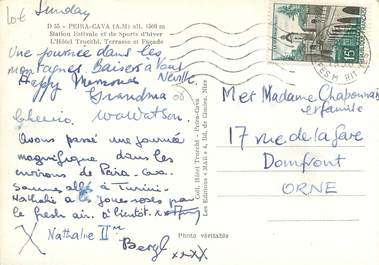 Sunday
D 55 - PEIRA-CAVA (A.M) alt. 1500 m
Station Estivale et de Sports d'hiver
L'Hôtel Truchi. Terrasse et Façade
Une journée dans les
montagnes. Baisers à tous
Happy Memories Neville
Grandma
Watson.
Avons passé une journée
magnifique dans les
environs de Peira-cava.
Sommes allés à Turini.
Nathalie a les joues roses par
le fresh air. à bientôt.
Nathalie II
Photo véritable
Coll. Hôtel Truchi - Peira-Cava
Les Editions "MAR"
Nice
15F
Mr et Madame
et famille
17 rue de la gare
Domfront
ORNE